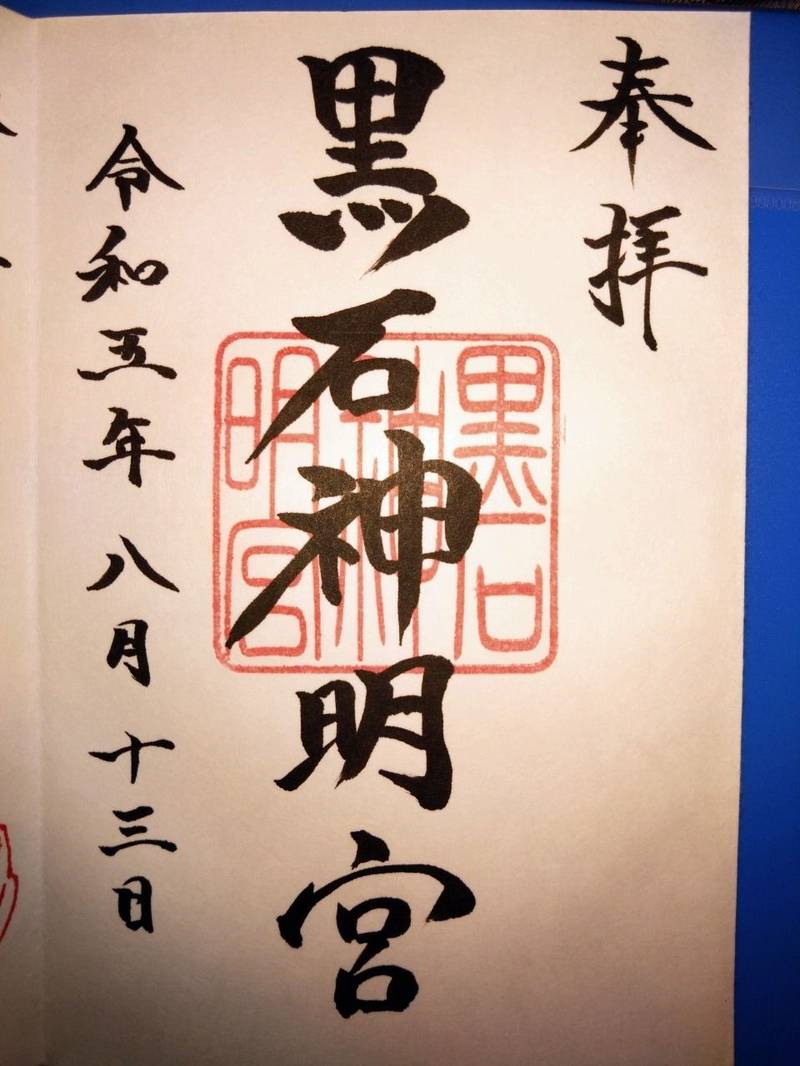 奉拝
黒石神明宮
黒石
神明
明宮
令和五年八月十三日